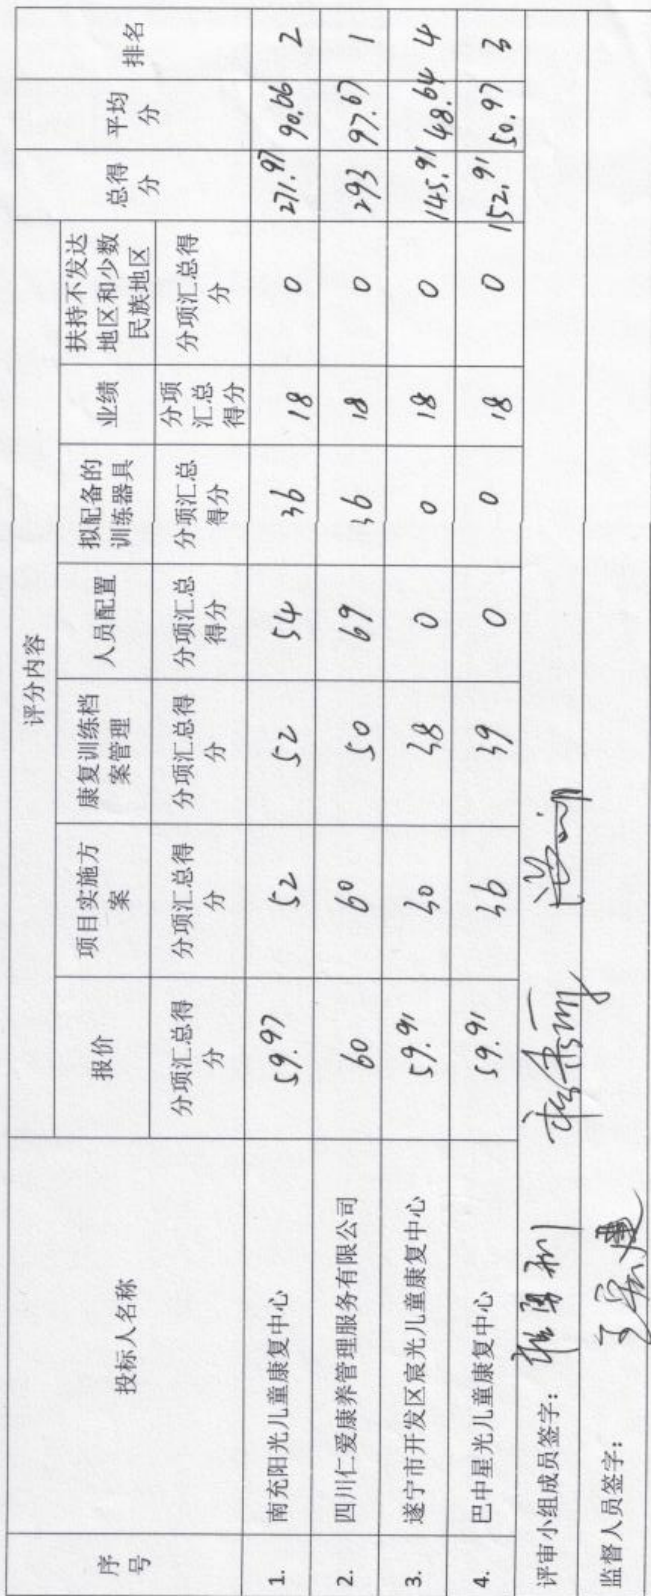 序号 投标人名称 评分内容 总得分 平均分 排名
报价 项目实施方案 康复训练档案管理 人员配置 拟配备的训练器具 业绩 扶持不发达地区和少数民族地区
分项汇总得分 分项汇总得分 分项汇总得分 分项汇总得分 分项汇总得分 分项汇总得分 分项汇总得分
1. 南充阳光儿童康复中心 59.97 52 52 54 36 18 0 271.97 90.66 2
2. 四川仁爱康养管理服务有限公司 60 60 50 69 36 18 0 293 97.67 1
3. 遂宁市开发区宸光儿童康复中心 59.91 30 38 0 0 18 0 145.91 48.64 4
4. 巴中星光儿童康复中心 59.91 36 39 0 0 18 0 152.91 50.97 3
评审小组成员签字：
监督人员签字：